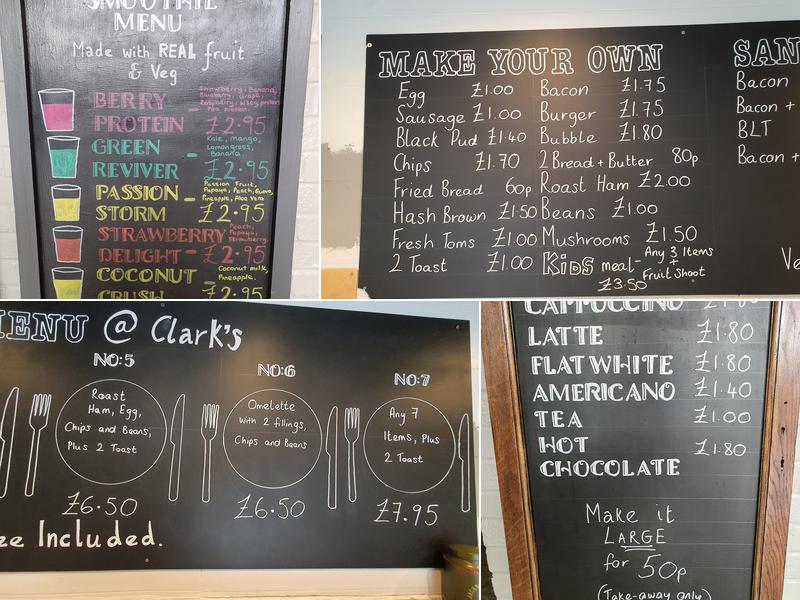 SMOOTHIE
MENU
Made with REAL fruit
& Veg
BERRY
PROTEIN - £2.95
Strawberry, Banana,
GREEN
REVIVER - £2.95
Kale, Mango,
Lemongrass,
Banana.
PASSION
STORM - £2.95
Passion Fruit,
Papaya, Peach, Guava,
Pineapple, Aloe Vera
STRAWBERRY
DELIGHT - £2.95
Peach,
Papaya,
Strawberry.
COCONUT -
CRUSH £2.95
Coconut milk,
Pineapple.
MAKE YOUR OWN
Egg £1.00 Bacon £1.75
Sausage £1.00 Burger £1.75
Black Pud £1.40 Bubble £1.80
Chips £1.70 2 Bread + Butter 80p
Fried Bread 60p Roast Ham £2.00
Hash Brown £1.50 Beans £1.00
Fresh Toms £1.00 Mushrooms £1.50
2 Toast £1.00 KIDS meal- Any 3 Items
+
Fruit Shoot
£3.50
SAN
Bacon
Bacon +
BLT
Bacon +
Ve
MENU @ Clark's
NO:5
Roast
Ham, Egg,
Chips and Beans,
Plus 2 Toast
£6.50
NO:6
Omelette
with 2 fillings,
Chips and Beans
£6.50
NO:7
Any 7
Items, Plus
2 Toast
£7.95
ee Included.
CAPPUCCINO
LATTE £1.80
FLAT WHITE £1.80
AMERICANO £1.40
TEA £1.00
HOT £1.80
CHOCOLATE
Make it
LARGE
for 50p
(Take-away only)